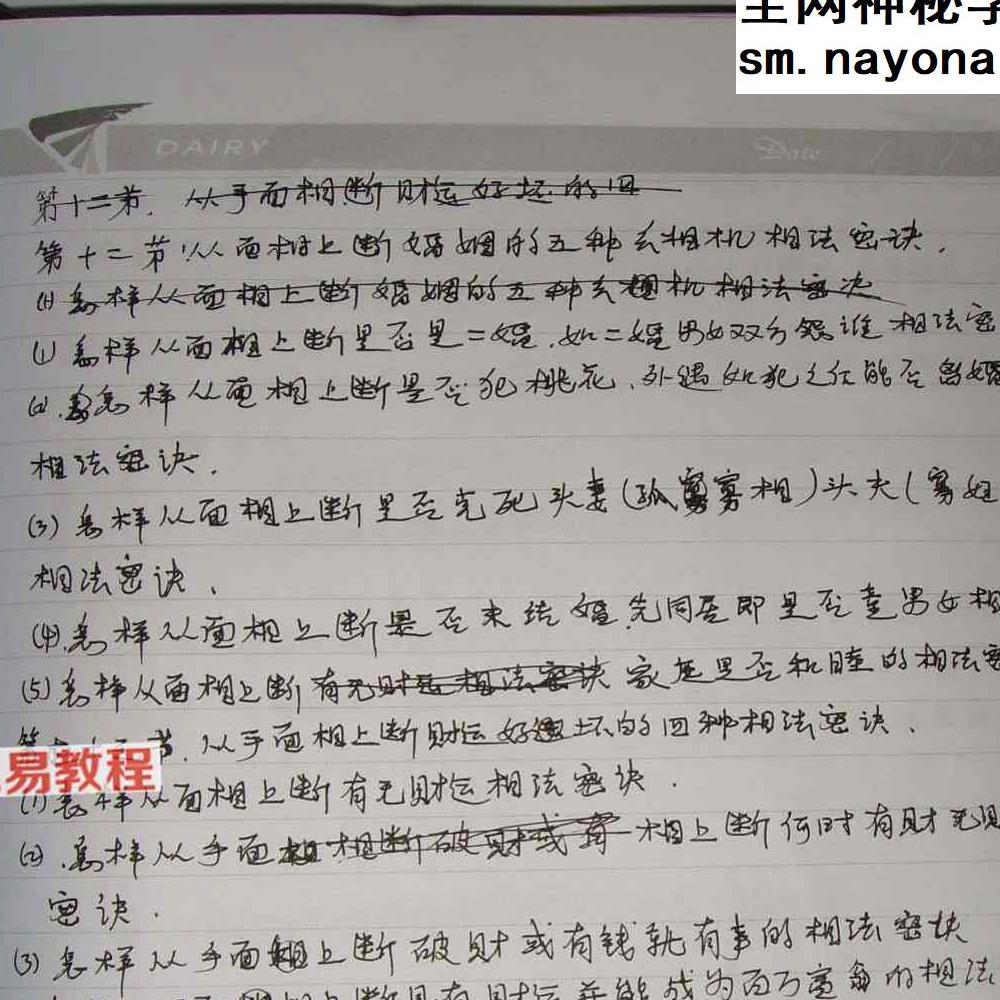 全网神秘学
sm.nayona
DAIRY
Date / /
第十二节.从手面相断财运好坏的四
第十二节.从面相上断婚姻的五种玄相机相法密诀.
(1)怎样从面相上断婚姻的五种玄机相法密决
(1)怎样从面相上断是否是二婚.如二婚男女双方怨谁相法密
(2).怎样从面相上断是否犯桃花.外遇如犯之后能否离婚
相法密诀.
(3)怎样从面相上断是否克死头妻(孤寡相)头夫(寡妇
相法密诀.
(4).怎样从面相上断是否未结婚先同居即是否童男女相
(5)怎样从面相上断有无财运相法密诀家庭是否和睦的相法密
易教程
节.从手面相上断财运好坏的四种相法密诀.
(1)怎样从面相上断有无财运相法密诀.
(2).怎样从手面相断破财或有相上断何时有财无
密诀.
(3)怎样从手面相上断破财或有钱就有事的相法密诀
相上断是否有财运并能成为百万富翁的相法